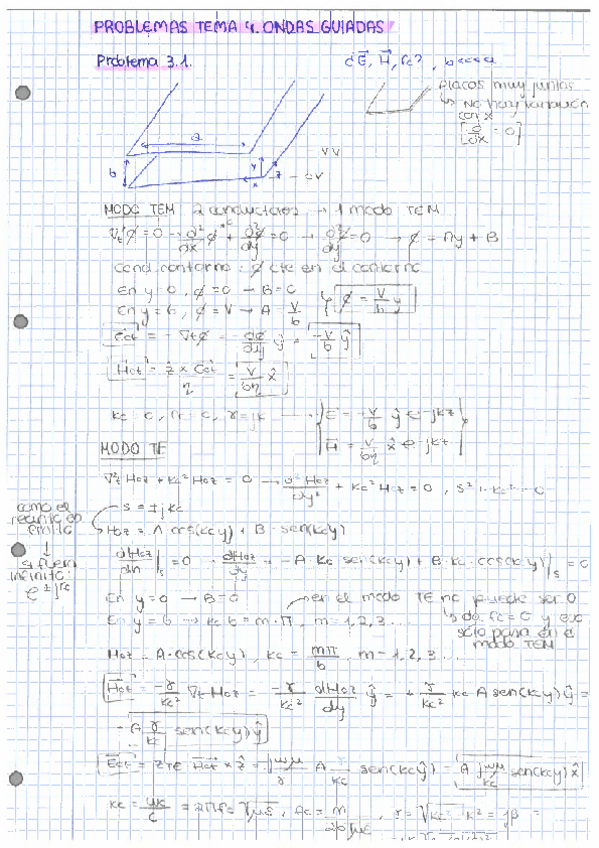 PROBLEMAS TEMA 4. ONDAS GUIADAS
Problema 3.1.
¿E⃗, H⃗, fc?, b<<<a
placas muy juntas
↳ No hay variación
con x
[∂/∂x = 0]
a
b
y
x
z
V V
0V
MODO TEM 2 conductores → 1 modo TEM
∇t²φ = 0 → ∂²φ/∂x + ∂²φ/∂y = 0 → ∂²φ/∂y = 0 → φ = Ay + B
Cond. contorno: φ cte en el contorno
En y=0, φ=0 → B=0
En y=b, φ=V → A = V/b
φ = V/b y
= -∇tφ = -∂φ/∂y ŷ = -V/b ŷ
= V/bη x̂
kc = 0, fc = 0, γ = jk
E⃗ = -V/b ŷ e^-jkz
H⃗ = V/bη x̂ e^-jkz
MODO TE
∇t² Hoz + kc² Hoz = 0 → ∂²Hoz/∂y² + kc² Hoz = 0,
como el
recinto es
finito
↓
si fuera
infinito:
s = ± jkc
Hoz = A cos(kcy) + B sen(kcy)
∂Hoz/∂n |s = 0 → ∂Hoz/∂y = -A kc sen(kcy) + B kc cos(kcy) |s = 0
En y=0 → B=0
en el modo TE no puede ser 0
En y=b → kc b = m·π, m = 1,2,3...
↳ da fc=0 y eso
sólo para en el
modo TEM
Hoz = A·cos(kcy), kc = mπ/b, m = 1,2,3...
= -γ/kc² ∇t Hoz = -γ/kc² ∂Hoz/∂y ŷ = +γ/kc² kc A sen(kcy) ŷ =
A γ/kc sen(kcy) ŷ
= ZTE × ẑ = jωμ/γ A γ/kc sen(kcy) = A jωμ/kc sen(kcy) x̂
kc = ωc/c = 2πfc √με, fc = m/2b√με, γ = √kc² - k² = jβ =